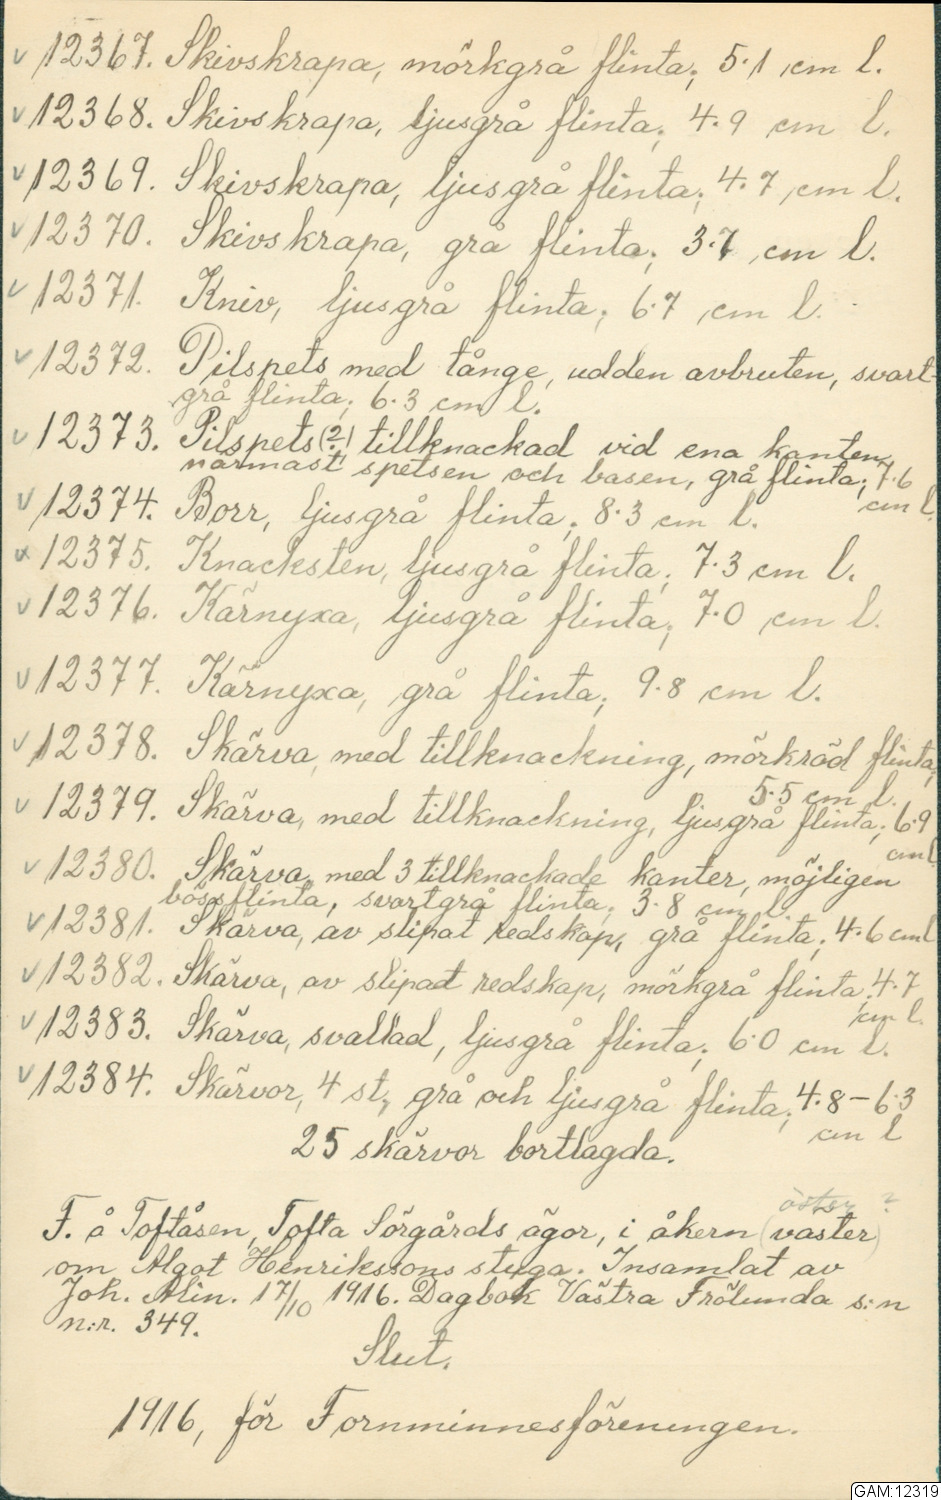 v 12367. Skivskrapa, mörkgrå flinta; 5.1 cm l.
v 12368. Skivskrapa, ljusgrå flinta; 4.9 cm l.
v 12369. Skivskrapa, ljusgrå flinta; 4.7 cm l.
v 12370. Skivskrapa, grå flinta; 3.7 cm l.
v 12371. Kniv, ljusgrå flinta; 6.7 cm l.
v 12372. Pilspets med tånge, udden avbruten, svart-
grå flinta; 6.3 cm l.
v 12373. Pilspets (?) tillknackad vid ena kanten
närmast spetsen och basen, grå flinta; 7.6
cm l.
v 12374. Borr, ljusgrå flinta; 8.3 cm l.
x 12375. Knacksten, ljusgrå flinta; 7.3 cm l.
v 12376. Kärnyxa, ljusgrå flinta; 7.0 cm l.
v 12377. Kärnyxa, grå flinta; 9.8 cm l.
v 12378. Skärva, med tillknackning, mörkröd flinta;
5.5 cm l.
v 12379. Skärva, med tillknackning, ljusgrå flinta; 6.9
cm l
v 12380. Skärva, med 3 tillknackade kanter, möjligen
bössflinta, svartgrå flinta; 3.8 cm l.
v 12381. Skärva, av slipat redskap, grå flinta; 4.6 cm l
v 12382. Skärva, av slipat redskap, mörkgrå flinta; 4.7
cm l.
v 12383. Skärva, svallad, ljusgrå flinta; 6.0 cm l.
v 12384. Skärvor, 4 st, grå och ljusgrå flinta; 4.8 – 6.3
cm l
25 skärvor bortlagda.
öster ?
F. å Toftåsen, Tofta Sörgårds ägor, i åkern (väster)
om Algot Henrikssons stuga. Insamlat av
Joh. Alin. 17/10 1916. Dagbok Västra Frölunda s:n
n:r. 349.
Slut.
1916, för Fornminnesföreningen.
GAM:12319